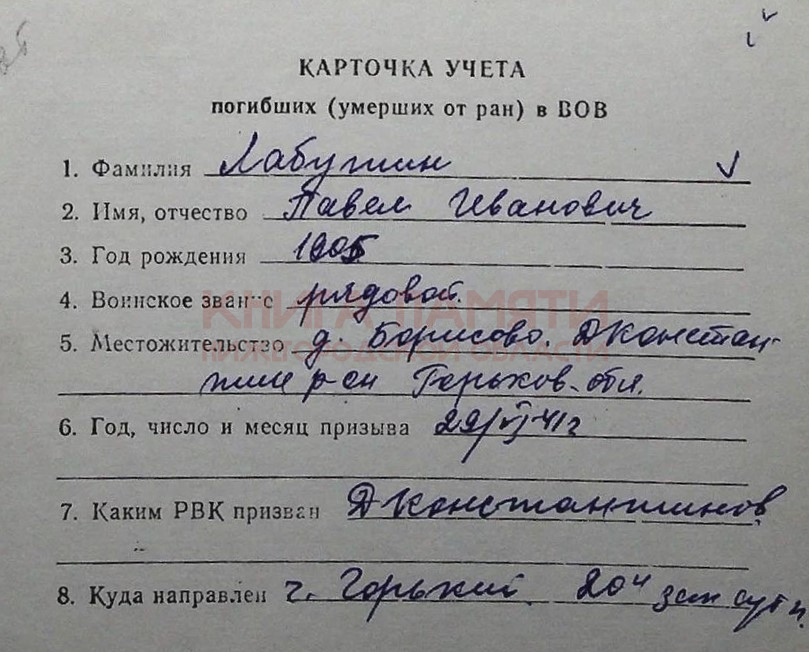 КАРТОЧКА УЧЕТА
погибших (умерших от ран) в ВОВ
1. Фамилия Лабутин
2. Имя, отчество Павел Иванович
3. Год рождения 1905
4. Воинское звание рядовой.
КНИГА ПАМЯТИ
5. Местожительство д. Борисово. ДКонстан-
НИЖЕГОРОДСКОЙ ОБЛАСТИ
р-он Горьков. обл.
6. Год, число и месяц призыва 29/VI-41г
7. Каким РВК призван ДКонстантинов.
8. Куда направлен г. Горький 204 зап